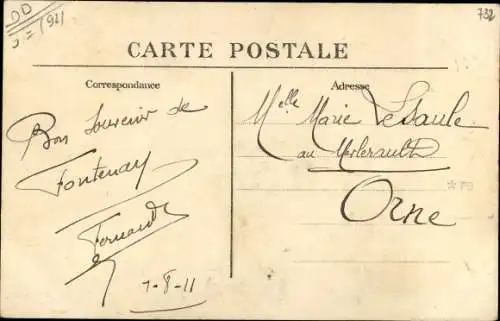 732
CARTE POSTALE
Correspondance
Bon souvenir de
Fontenay
Fernand
Adresse
Melle Marie Lesaule
au Merlerault
Orne